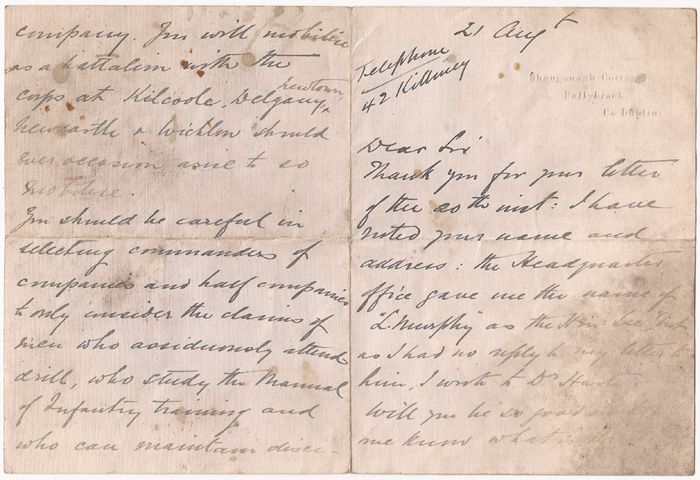 21 Augt
Telephone
42 Killiney
Shanganagh Cottage
Ballybrack,
Co Dublin.
Dear Sir
Thank you for your letter
of the 20th inst: I have
noted your name and
address: the Headquarter
office gave me the name of
"L. Murphy" as the Hon: Sec, but
as I had no reply to my letter to
him, I wrote to Dr
Will you be so good
me know what is
company. You will mobilise
as a battalion with the
corps at Kilcoole, Delgany, Newtown,
Newcastle & Wicklow should
ever occasion arise to so
mobilise.
You should be careful in
selecting commanders of
companies and half companies
to only consider the claims of
men who assiduously attend
drill, who study the Manual
of Infantry training and
who can maintain disci-